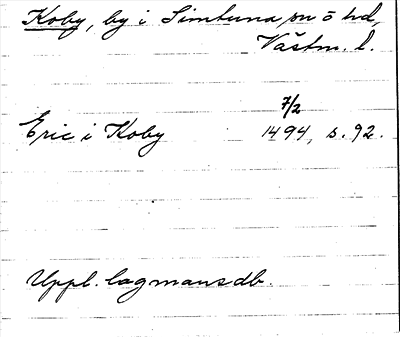 Koby, by i Simtuna sn o hd,
Västm. l.
7/2
Eric i Koby 1494, s. 92.
Uppl. lagmansdb.